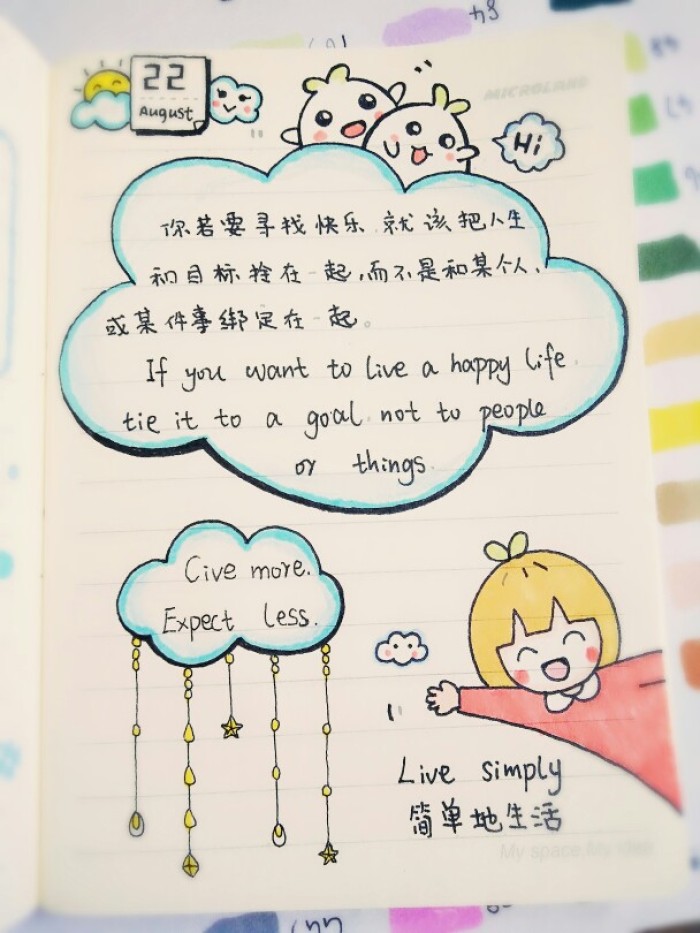 22
August
MICROLAND
Hi
你若要寻找快乐,就该把人生
和目标拴在一起,而不是和某个人、
或某件事绑定在一起。
If you want to live a happy life.
tie it to a goal. not to people
or things.
Give more.
Expect less.
Live simply
简单地生活
My space My